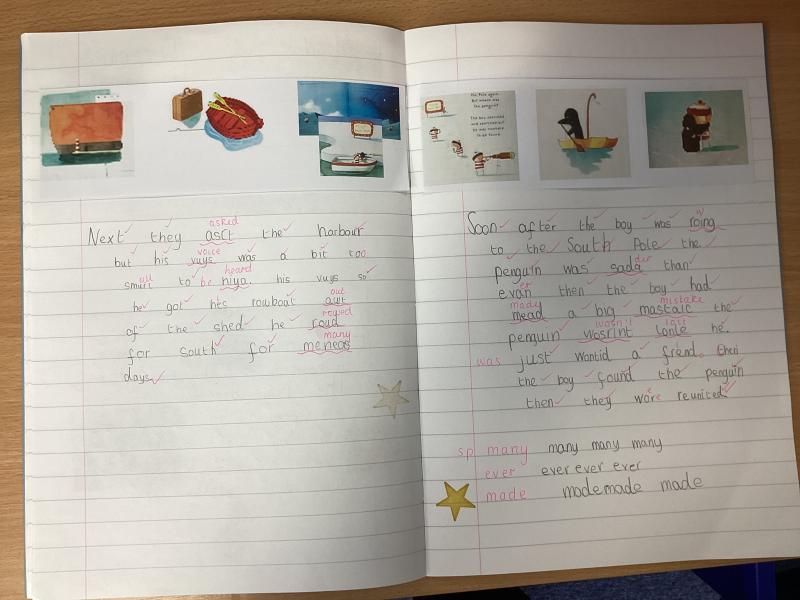 the Pole again.
But where was
the penguin?
The boy searched
and searched but
he was nowhere
to be found.
asked
Next they asct the harbour
voice
but his vuys was a bit too
all heard
smurl to be hiyd. his vuys so
out
he got his rowboat awt
rowed
of the shed he roud
many
for South for meneas
days
w
Soon after the boy was roing
to the South Pole the
der
penguin was sada than
er
evan then the boy had
made mistake
mead a big mastaic the
wasn't
penguin wosrint lonle he.
was just wantid a frend. then
the boy found the penguin
then they wore reunited
sp many many many many
ever ever ever ever
made made made made